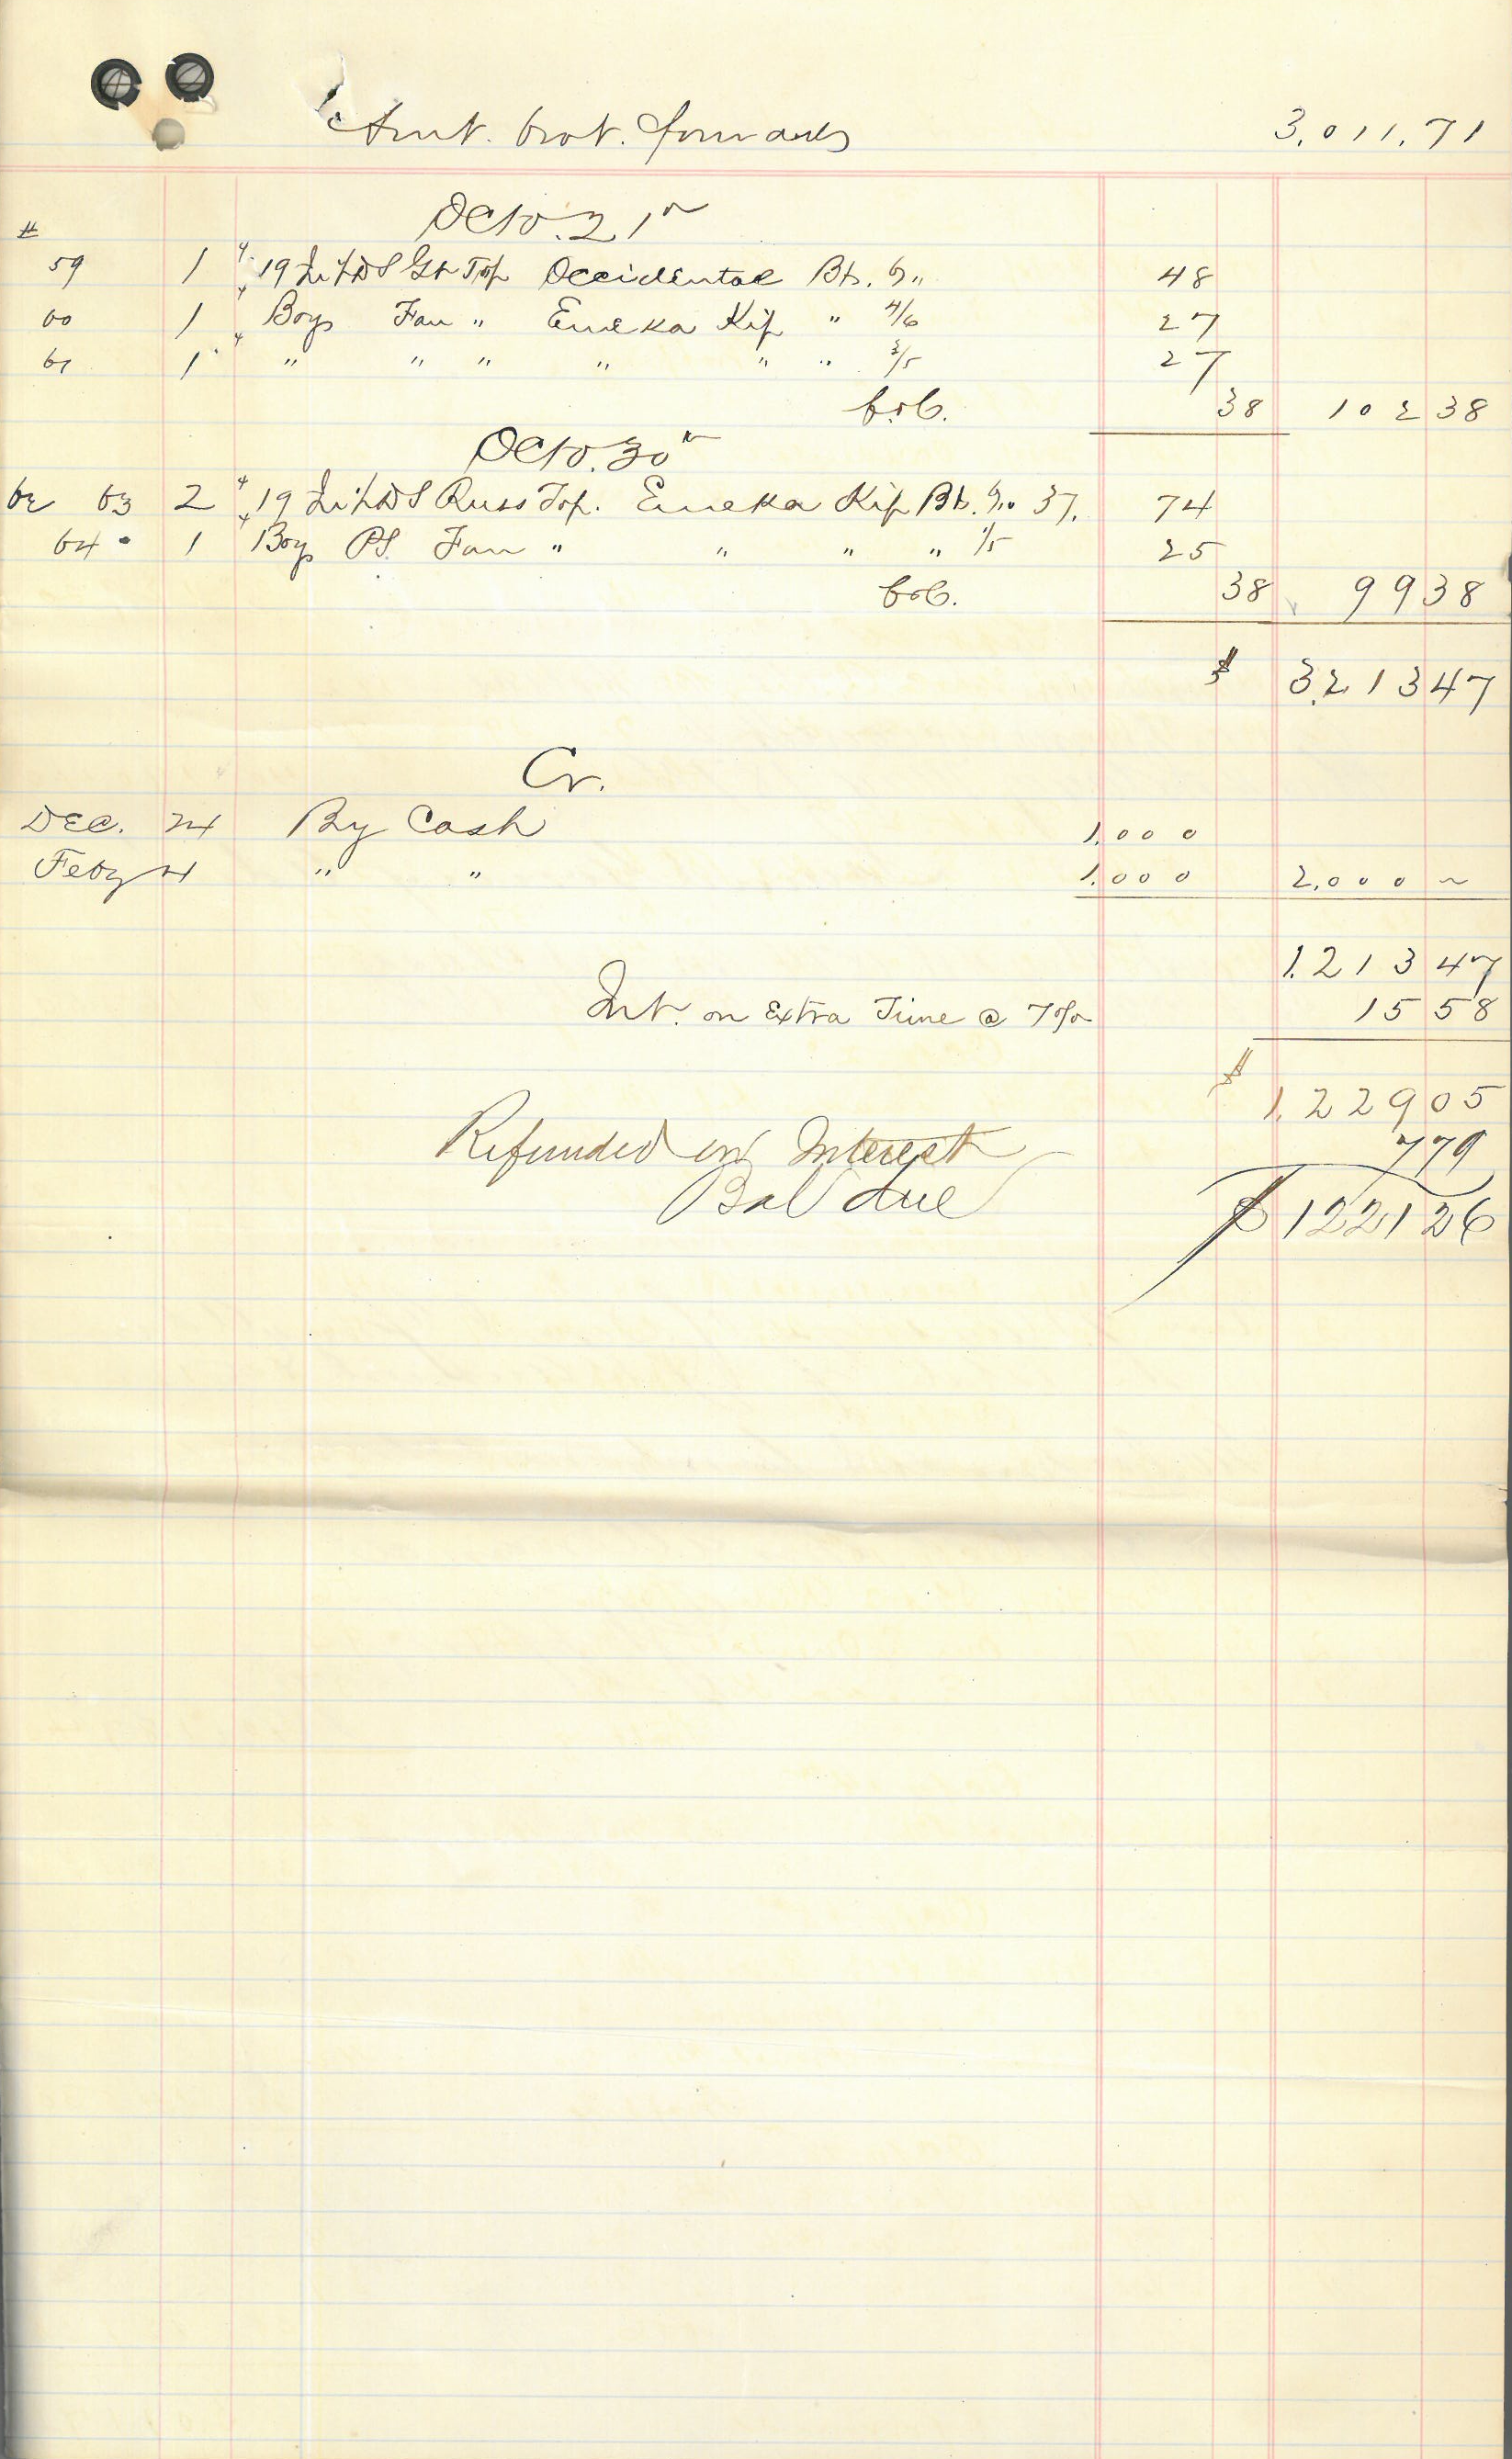 Amt. brot. forwards 3,011.71
Octo. 21"
#
59 1 19 In HDS Gt Top Occidental Bts. 48
60 1 Boys Fan " Eureka Kip " 4/6 27
61 1 " " " " " " 2/5 27
38 102 38
Octo. 30"
62 63 2 19 In HDS Russ Top. Eureka Kip Bts. 37. 74
64 1 Boys PS. Fan " " " " 1/5 25
38 99 38
$ 3,213 47
Cr.
Dec. 24 By Cash 1,000
Feby 4 " " 1,000 2,000 ~
1,213 47
Int. on Extra Time @ 7 o/o 15 58
$ 1,229 05
Refunded on Interest 7 79
Bal due $ 1221 26